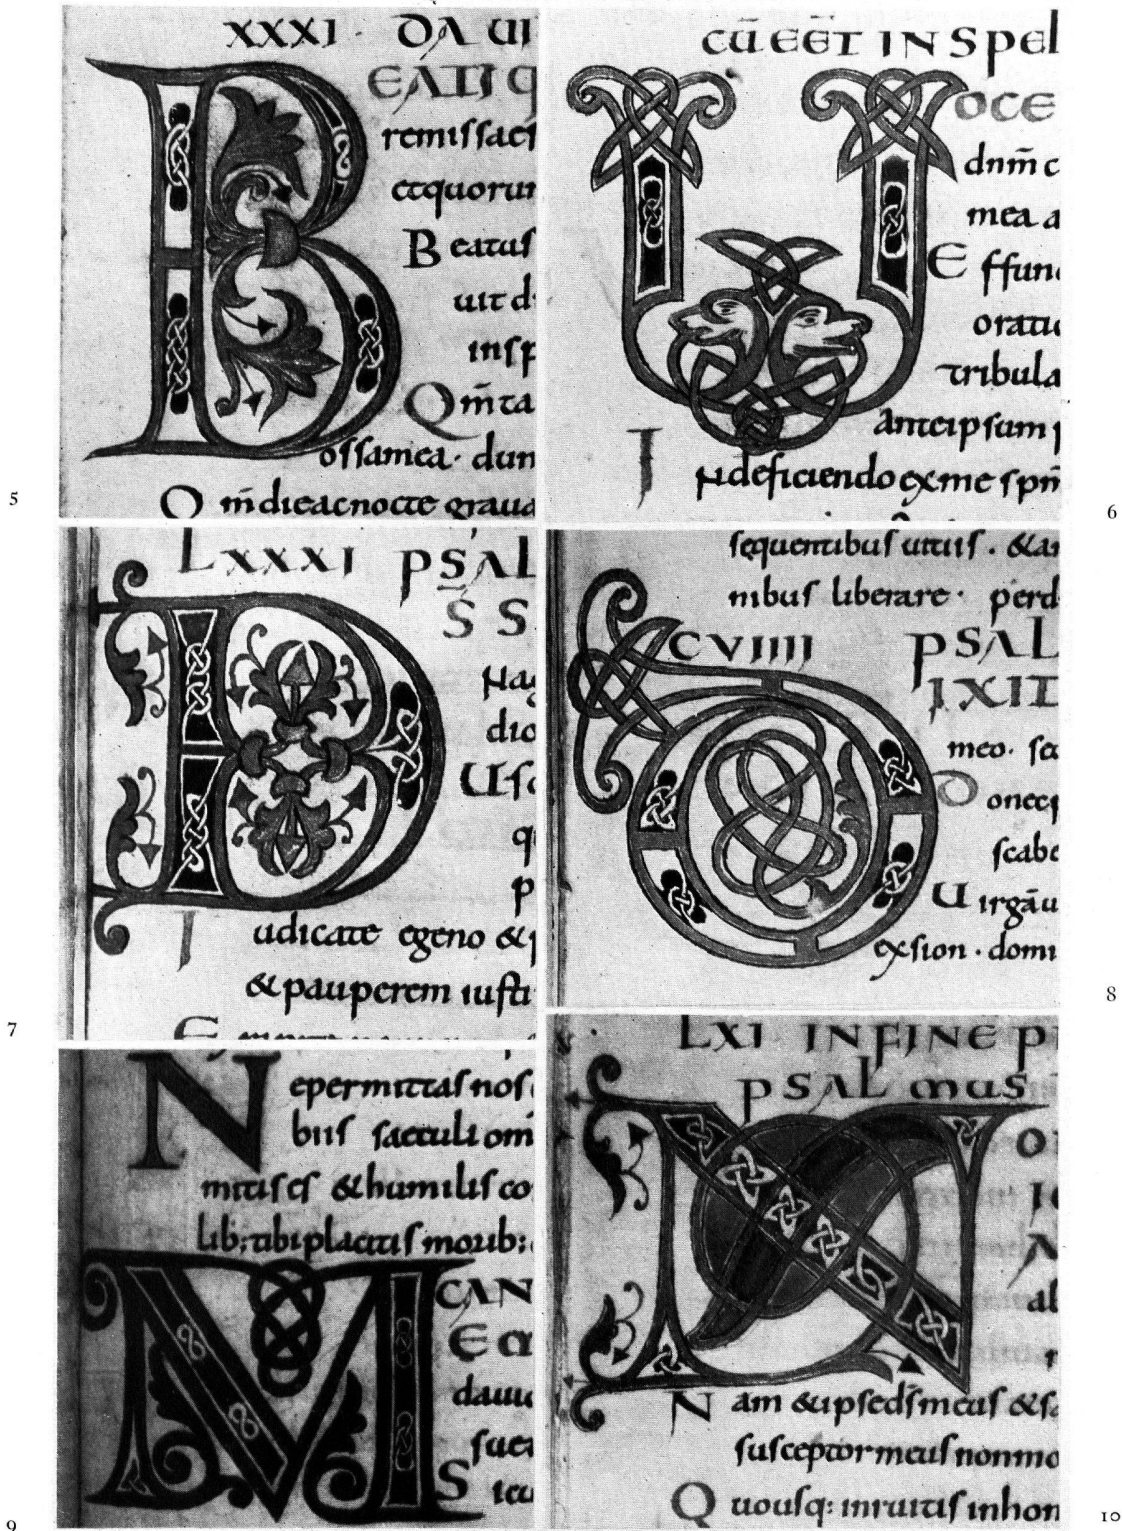 XXXI · DA UI
EATI Q
remissaes
etquorum
Beatus
uit d
insp
Qm̄ta
ossamea · dum
Qm̄dieacnocte graua
5
CŪEĒT IN SPEL
OCE
dnm̄ c
mea a
Effun
oratio
tribula
anteipsum p
I
ndeficiendo exme spm̄
6
LXXXI PSAL
S S
nag
dio
Usq
q
p
I udicate egeno & p
& pauperem iusti
7
sequentibus uitiis · & a
nibus liberare · perd
CVIIII PSAL
IXIT
meo · sed
Donecp
scabe
Uirgā u
exsion · domi
8
Nepermittas nos
bus saeculi om
mitis es & humilis co
lib; tibi placitis morib;
CAN
E
dauid
S icu
9
LXI INFINE P
PSALMUS
O
al
Nam & ipsed̄s meus & sa
susceptor meus non mo
Quousq: inruitis inhom
10